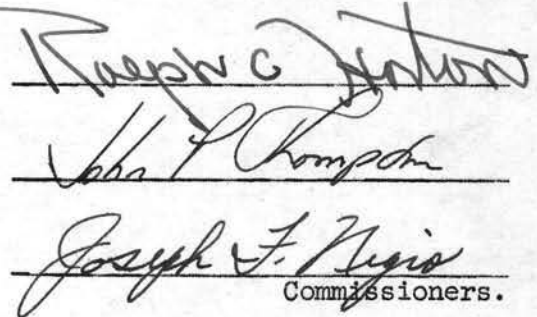 Ralph C
John P Thompson
Joseph F. Nigro
Commissioners.